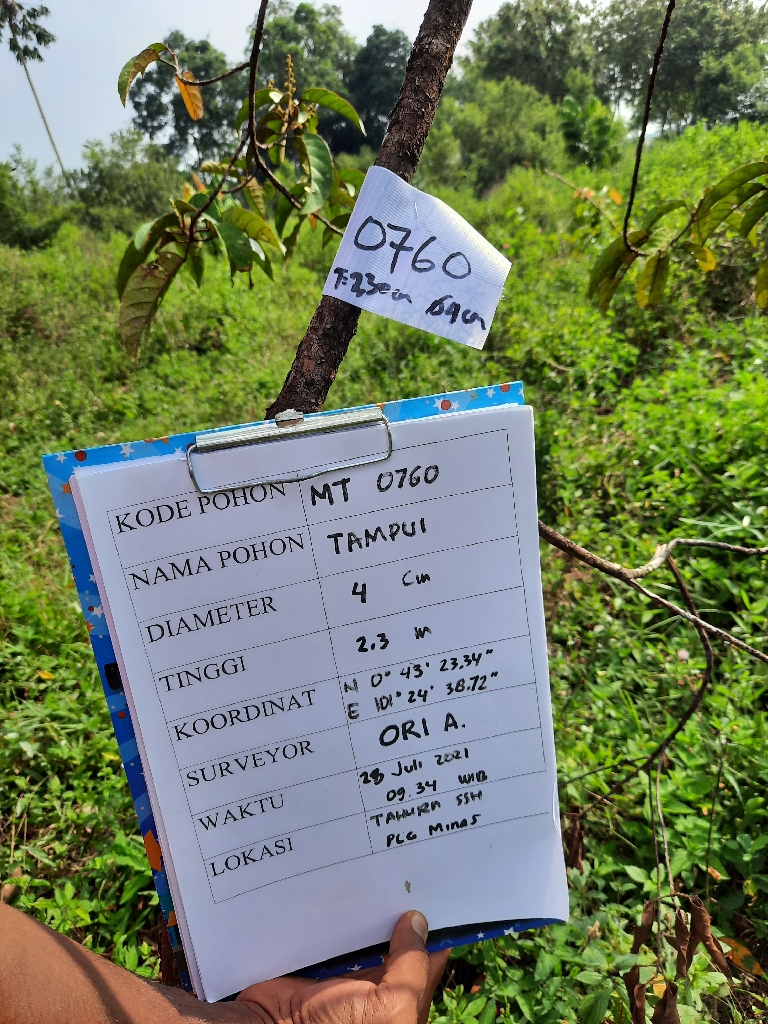 0760
KODE POHON MT 0760
NAMA POHON TAMPUI
DIAMETER 4 Cm
TINGGI 2.3 m
KOORDINAT N 0° 43' 23.34"
E 101° 24' 38.72"
SURVEYOR ORI A.
WAKTU 28 Juli 2021
09.34 WIB
LOKASI TAHURA SSH
PLG Minas